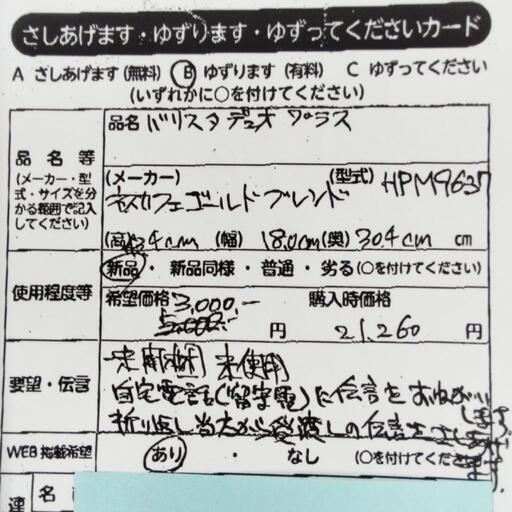 さしあげます・ゆずります・ゆずってくださいカード
A さしあげます(無料) B ゆずります(有料) C ゆずってください
(いずれかに○を付けてください)
品名等
(メーカー・型式・サイズを分かる範囲で記入してください)
品名 バリスタ デュオ プラス
(メーカー) (型式) HPM9637
ネスカフェ ゴールド ブレンド
(高) 34cm (幅) 18.0cm (奥) 30.4cm cm
使用程度等
新品・新品同様・普通・劣る(○を付けてください)
希望価格 3,000.- 購入時価格
5,000.- 円 21,260 円
要望・伝言
未開梱 未使用
自宅電話(留守電)に伝言をおねがいします。
折り返し当方から
渡しの伝言を
WEB掲載希望
あり ・ なし (○を付けてくださ
連 名